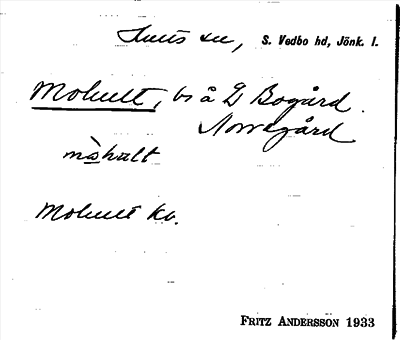 Linderås sn, S. Vedbo hd, Jönk. l.
Mohult, bs å L Bogård
Norregård
mòhult
Mohult kv.
FRITZ ANDERSSON 1933